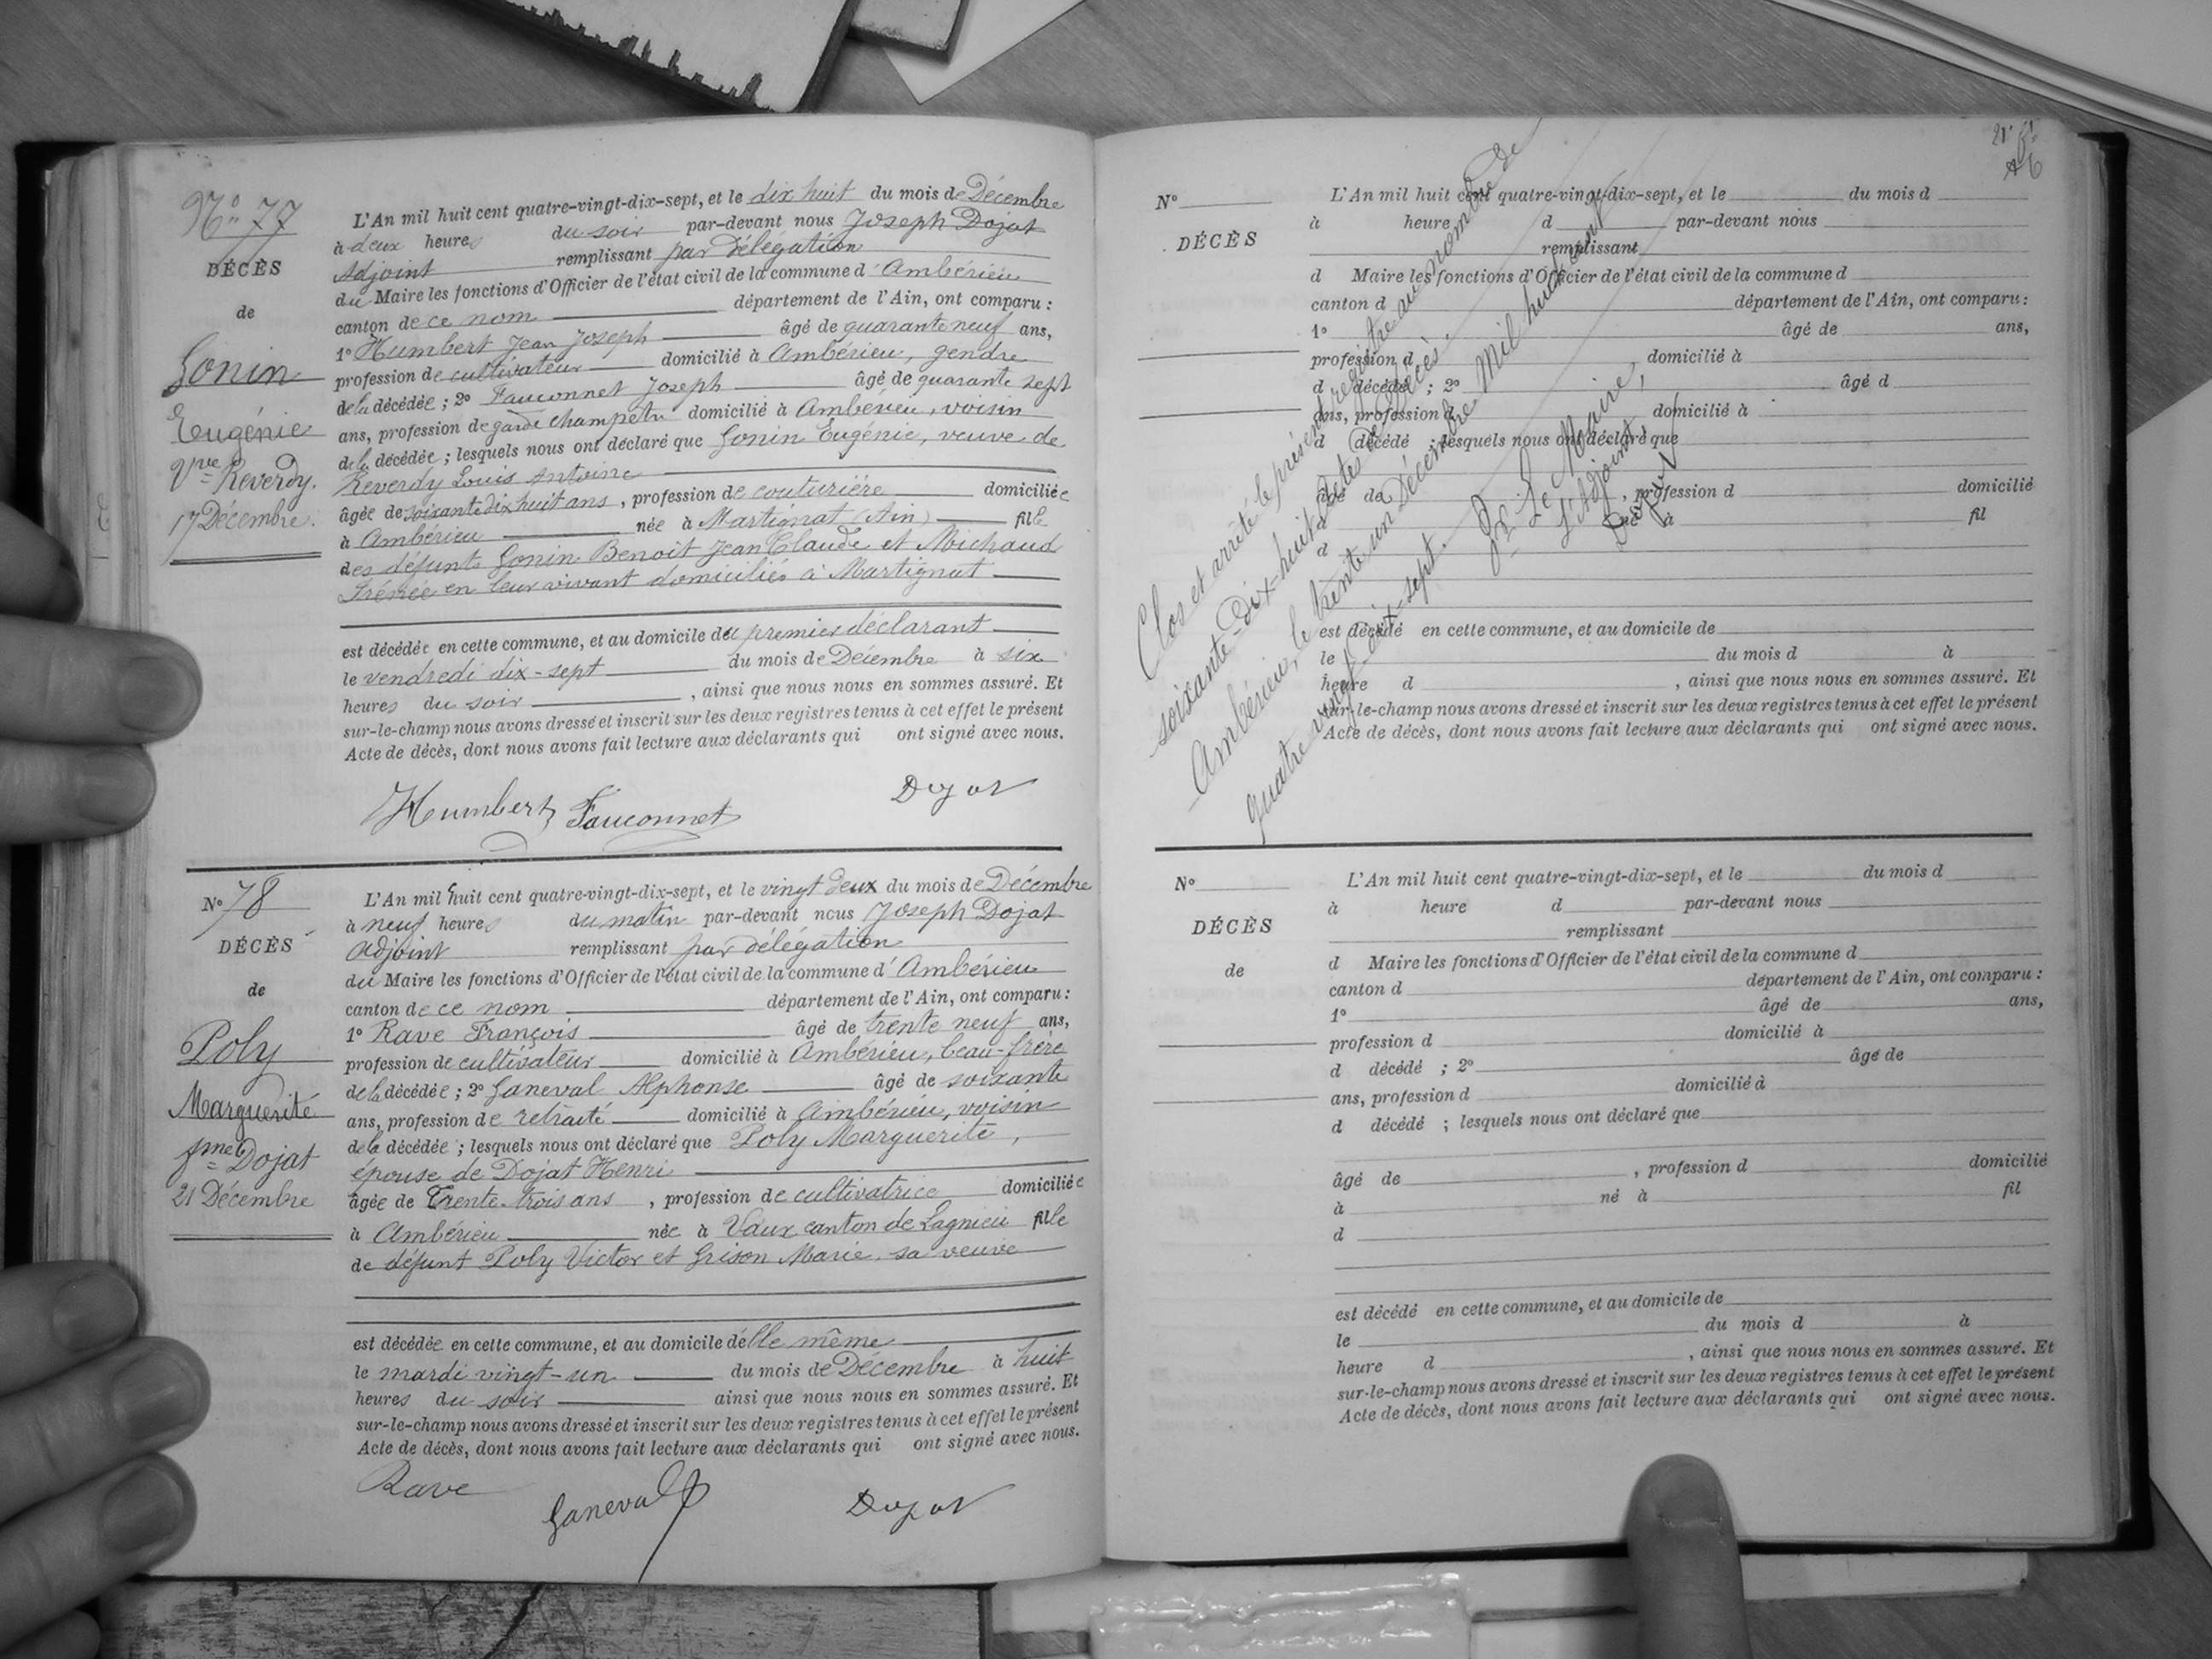 N° 77
DÉCÈS
de
Gonin
Eugénie
Vve Reverdy.
17 Décembre.
L'An mil huit cent quatre-vingt-dix-sept, et le dix huit du mois de Décembre
à deux heures du soir par-devant nous Joseph Dojat
Adjoint remplissant par délégation
du Maire les fonctions d'Officier de l'état civil de la commune d'Ambérieu
canton de ce nom département de l'Ain, ont comparu :
1° Humbert Jean Joseph âgé de quarante neuf ans,
profession de cultivateur domicilié à Ambérieu, gendre
de la décédée ; 2° Fauconnet Joseph âgé de quarante sept
ans, profession de garde champetre domicilié à Ambérieu, voisin
de la décédée ; lesquels nous ont déclaré que Gonin Eugénie, veuve de
Reverdy Louis Antoine
âgée de soixante dix huit ans, profession de couturière domiciliée
à Ambérieu née à Martignat (Ain) fille
des défunts Gonin Benoit Jean Claude et Michaud
Irénée en leur vivant domiciliés à Martignat
est décédée en cette commune, et au domicile du premier déclarant
le vendredi dix-sept du mois de Décembre à six
heures du soir, ainsi que nous nous en sommes assuré. Et
sur-le-champ nous avons dressé et inscrit sur les deux registres tenus à cet effet le présent
Acte de décès, dont nous avons fait lecture aux déclarants qui ont signé avec nous.
Humbert Fauconnet Dojat
N° 78
DÉCÈS
de
Poly
Marguerite
fme Dojat
21 Décembre
L'An mil huit cent quatre-vingt-dix-sept, et le vingt deux du mois de Décembre
à neuf heures du matin par-devant nous Joseph Dojat
Adjoint remplissant par délégation
du Maire les fonctions d'Officier de l'état civil de la commune d'Ambérieu
canton de ce nom département de l'Ain, ont comparu :
1° Rave François âgé de trente neuf ans,
profession de cultivateur domicilié à Ambérieu, beau-frère
de la décédée ; 2° Ganeval Alphonse âgé de soixante
ans, profession de retraité domicilié à Ambérieu, voisin
de la décédée ; lesquels nous ont déclaré que Poly Marguerite,
épouse de Dojat Henri
âgée de Trente-trois ans, profession de cultivatrice domiciliée
à Ambérieu née à Vaux canton de Lagnieu fille
de défunt Poly Victor et Grison Marie, sa veuve
est décédée en cette commune, et au domicile d'elle même
le mardi vingt-un du mois de Décembre à huit
heures du soir ainsi que nous nous en sommes assuré. Et
sur-le-champ nous avons dressé et inscrit sur les deux registres tenus à cet effet le présent
Acte de décès, dont nous avons fait lecture aux déclarants qui ont signé avec nous.
Rave Ganeval Dojat
N°
DÉCÈS
L'An mil huit cent quatre-vingt-dix-sept, et le du mois d
à heure d par-devant nous
remplissant
d Maire les fonctions d'Officier de l'état civil de la commune d
canton d département de l'Ain, ont comparu :
1° âgé de ans,
profession d domicilié à
d décédé ; 2° âgé d
ans, profession d domicilié à
d décédé ; lesquels nous ont déclaré que
âgé de , profession d domicilié
à né à fil
d
est décédé en cette commune, et au domicile de
le du mois d à
heure d , ainsi que nous nous en sommes assuré. Et
sur-le-champ nous avons dressé et inscrit sur les deux registres tenus à cet effet le présent
Acte de décès, dont nous avons fait lecture aux déclarants qui ont signé avec nous.
Clos et arrêté le présent registre au nombre de
soixante-dix-huit actes de décès.
Ambérieu, le trente un Décembre mil huit cent
quatre vingt-dix-sept.
Pr Le Maire,
L'Adjoint,
Dojat
N°
DÉCÈS
de
L'An mil huit cent quatre-vingt-dix-sept, et le du mois d
à heure d par-devant nous
remplissant
d Maire les fonctions d'Officier de l'état civil de la commune d
canton d département de l'Ain, ont comparu :
1° âgé de ans,
profession d domicilié à
d décédé ; 2° âgé de
ans, profession d domicilié à
d décédé ; lesquels nous ont déclaré que
âgé de , profession d domicilié
à né à fil
d
est décédé en cette commune, et au domicile de
le du mois d à
heure d , ainsi que nous nous en sommes assuré. Et
sur-le-champ nous avons dressé et inscrit sur les deux registres tenus à cet effet le présent
Acte de décès, dont nous avons fait lecture aux déclarants qui ont signé avec nous.